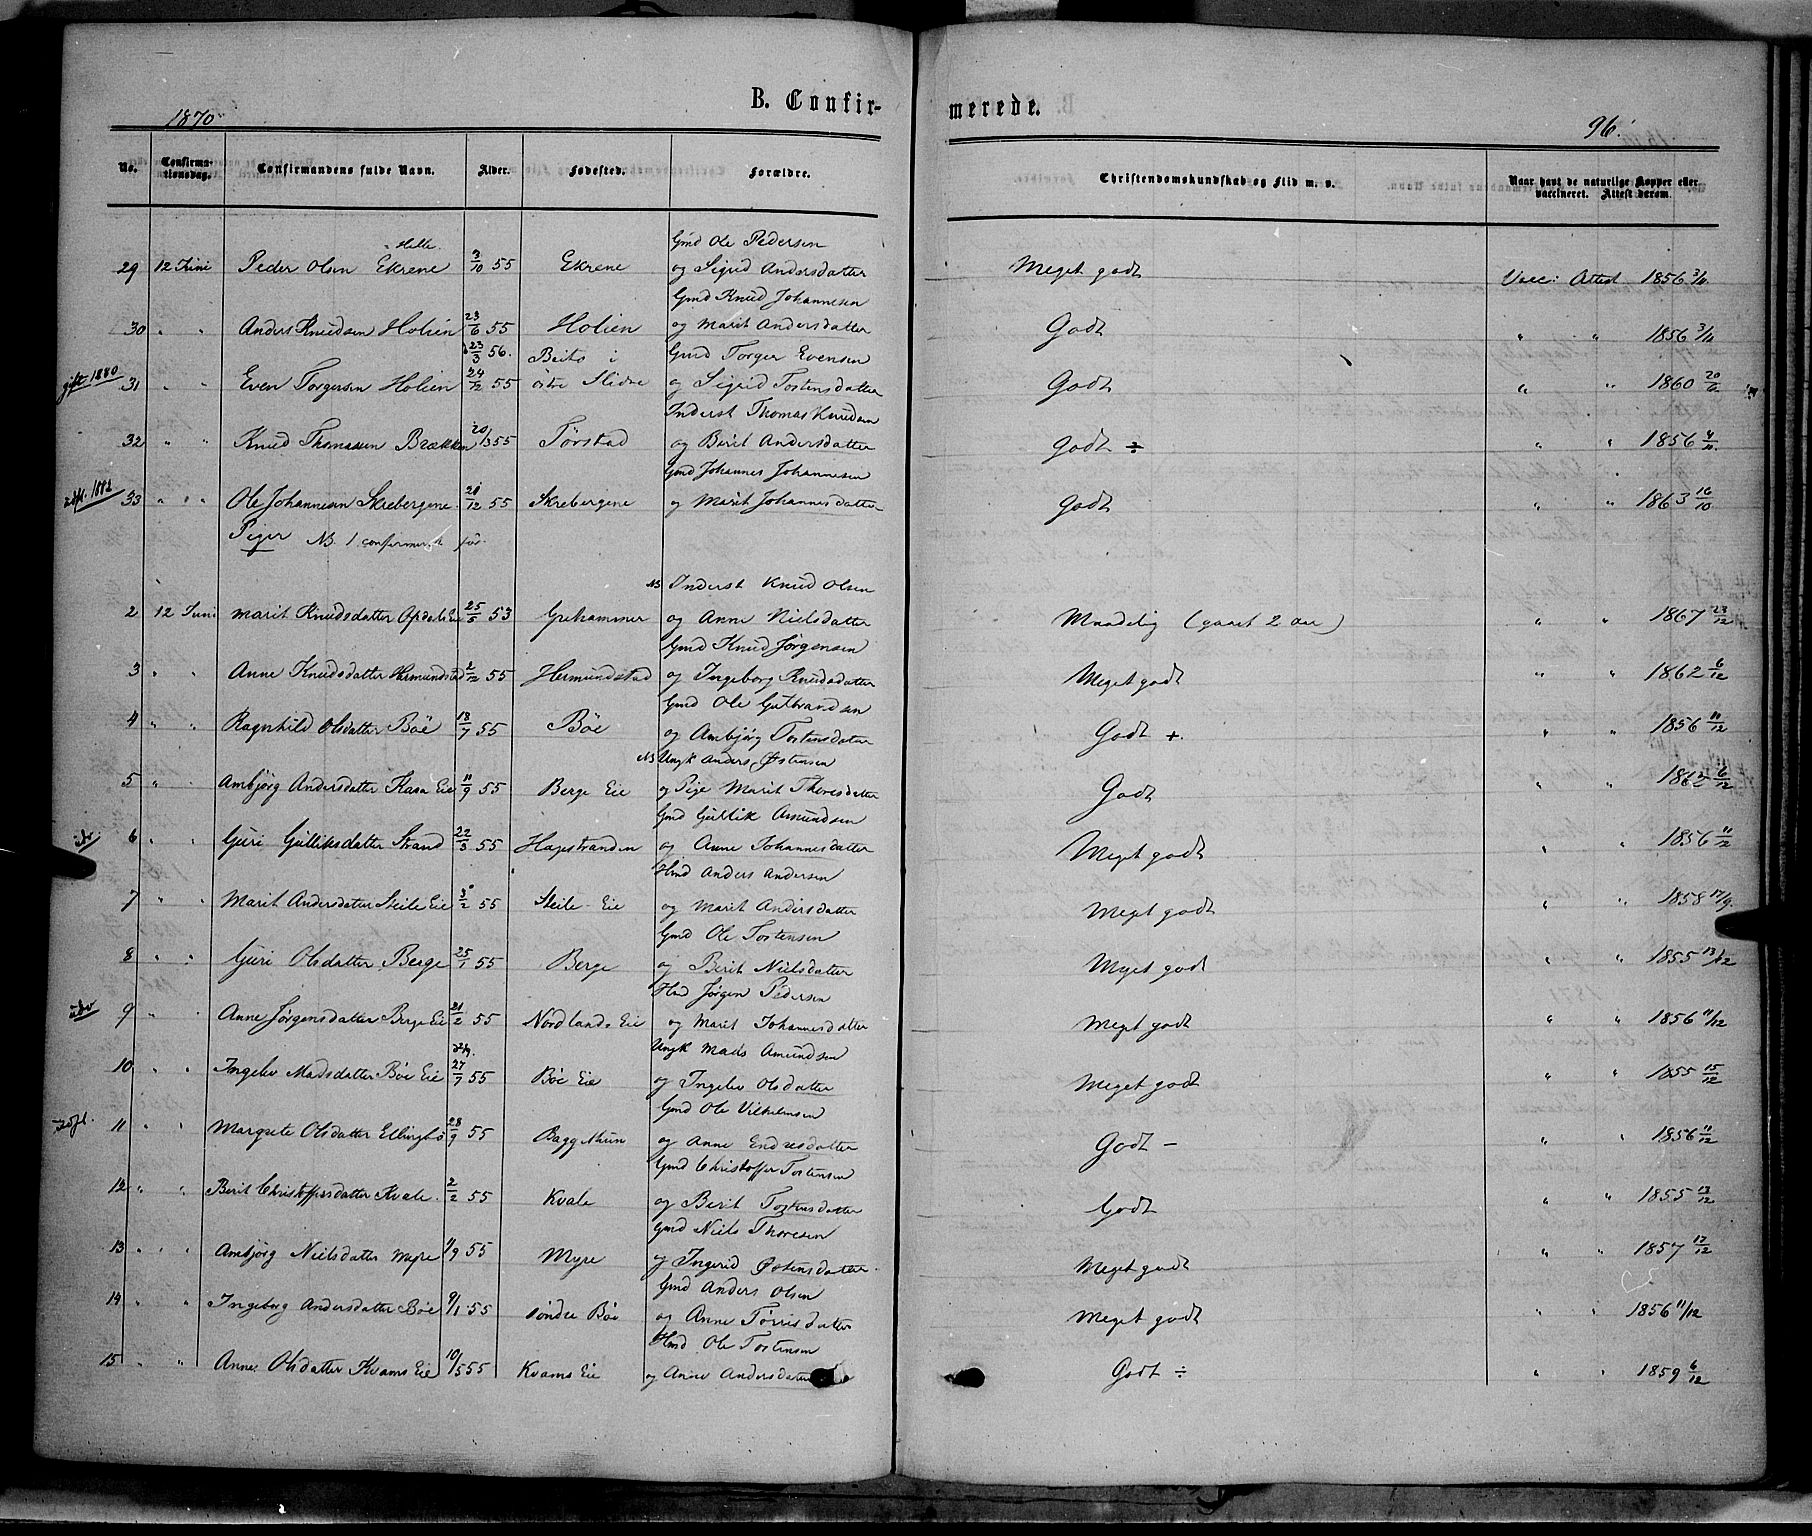 1870
B. Confir-
merede.
96.
No. Confirmationsdag. Confirmandens fulde Navn. Alder. Fødested. Forældre. Christendomskundskab og Flid m. v. Naar havt de naturlige Kopper eller vaccineret. Attest derom.
Helle.
Gmd Ole Pedersen
29 12 Juni Peder Olsen Ekrene 3/10 55 Ekrene og Sigrid Andersdatter Meget godt Vacc: Attest 1856 3/11
Gmd Knud Johannesen
30 " " Anders Knudsen Holien 23/6 55 Holien og Marit Andersdatter Godt " " 1856 3/11
23/3 56. Beito i Gmd Torger Evensen
gift 1880 31 " " Even Torgersen Holien 24/12 55 östre Slidre og Sigrid Tostensdatter Godt " " 1860
Inderst Thomas Knudsen
32 " " Knud Thomasen Brækken 20/3 55 Törstad og Berit Andersdatter Godt ÷ " " 1856 4/11
Gmd Johannes Johannesen
1882 33 " " Ole Johannesen Skrebergene 21/12 55 Skrebergene og Marit Johannesdatter Godt " " 1863 16/10
Piger NB. 1 confirmeret før.
NB Inderst Knud Olsen
2 12 Juni Marit Knudsdatter Opdals Eie 25/5 53 Grehammer og Anne Nielsdatter Maadelig (gaaet 2 aar) " " 1867 23/12
Gmd Knud Jørgensen
3 " " Anne Knudsdatter Hermundstad 2/12 55 Hermundstad og Ingeborg Knudsdatter Meget godt " " 1862 6/12
Gmd Ole Gulbrandsen
4 " " Ragnhild Olsdatter Böe 18/7 55 Böe og Ambjörg Tostensdatter Godt +. " " 1856 11/12
NB Ungk Anders Østensen
5 " " Ambjörg Andersdatter Kasa Eie 11/9 55 Berge Eie og Pige Marit Thoresdatter Godt " " 1862 6/12
Gmd Gullik Amundsen
6 " " Guri Gulliksdatter Strand 22/3 55 Hagestranden og Anne Johannesdatter Meget godt " " 1856 11/12
Hmd Anders Andersen
7 " " Marit Andersdatter Skeile Eie 3/2 55 Skeile - Eie og Marit Andersdatter Meget godt " " 1858 17/9.
Gmd Ole Tostensen
8 " " Guri Olsdatter Berge 25/1 55 Berge og Berit Nielsdatter Meget godt " " 1855 13/12
Hmd Jørgen Pedersen
udv 9 " " Anne Jørgensdatter Berge Eie 21/2 55 Nordlands Eie og Marit Johannesdatter Meget godt " " 1856 11/12
Ungk Mads Amundsen
10 " " Ingelev Madsdatter Böe Eie 27/7 55 Böe Eie og Ingelev Olsdatter Meget godt " " 1855 15/12
Gmd Ole Vilhelmsen
11 " " Margrete Olsdatter Ellingbö 28/9 55 og Anne Endresdatter Godt - " " 1856 11/12
Gmd Christoffer Tostensen
12 " " Berit Christoffersdatter Kvale. 2/2 55 Kvale og Berit Tostensdatter Godt " " 1855 13/12
Gmd Niels Thoresen
13 " " Ambjörg Nielsdatter Myre 1/9 55 Myre og Ingerid Østensdatter Meget godt " " 1857 17/12
Gmd Anders Olsen
14 " " Ingeborg Andersdatter Böe 9/1 55 söndre Böe og Anne Törrisdatter Meget godt " " 1856 11/12
Hmd Ole Tostensen
15 " " Anne Olsdatter Kvams Eie 10/5 55 Kvams Eie og Anne Andersdatter Godt ÷ " " 1859 6/12